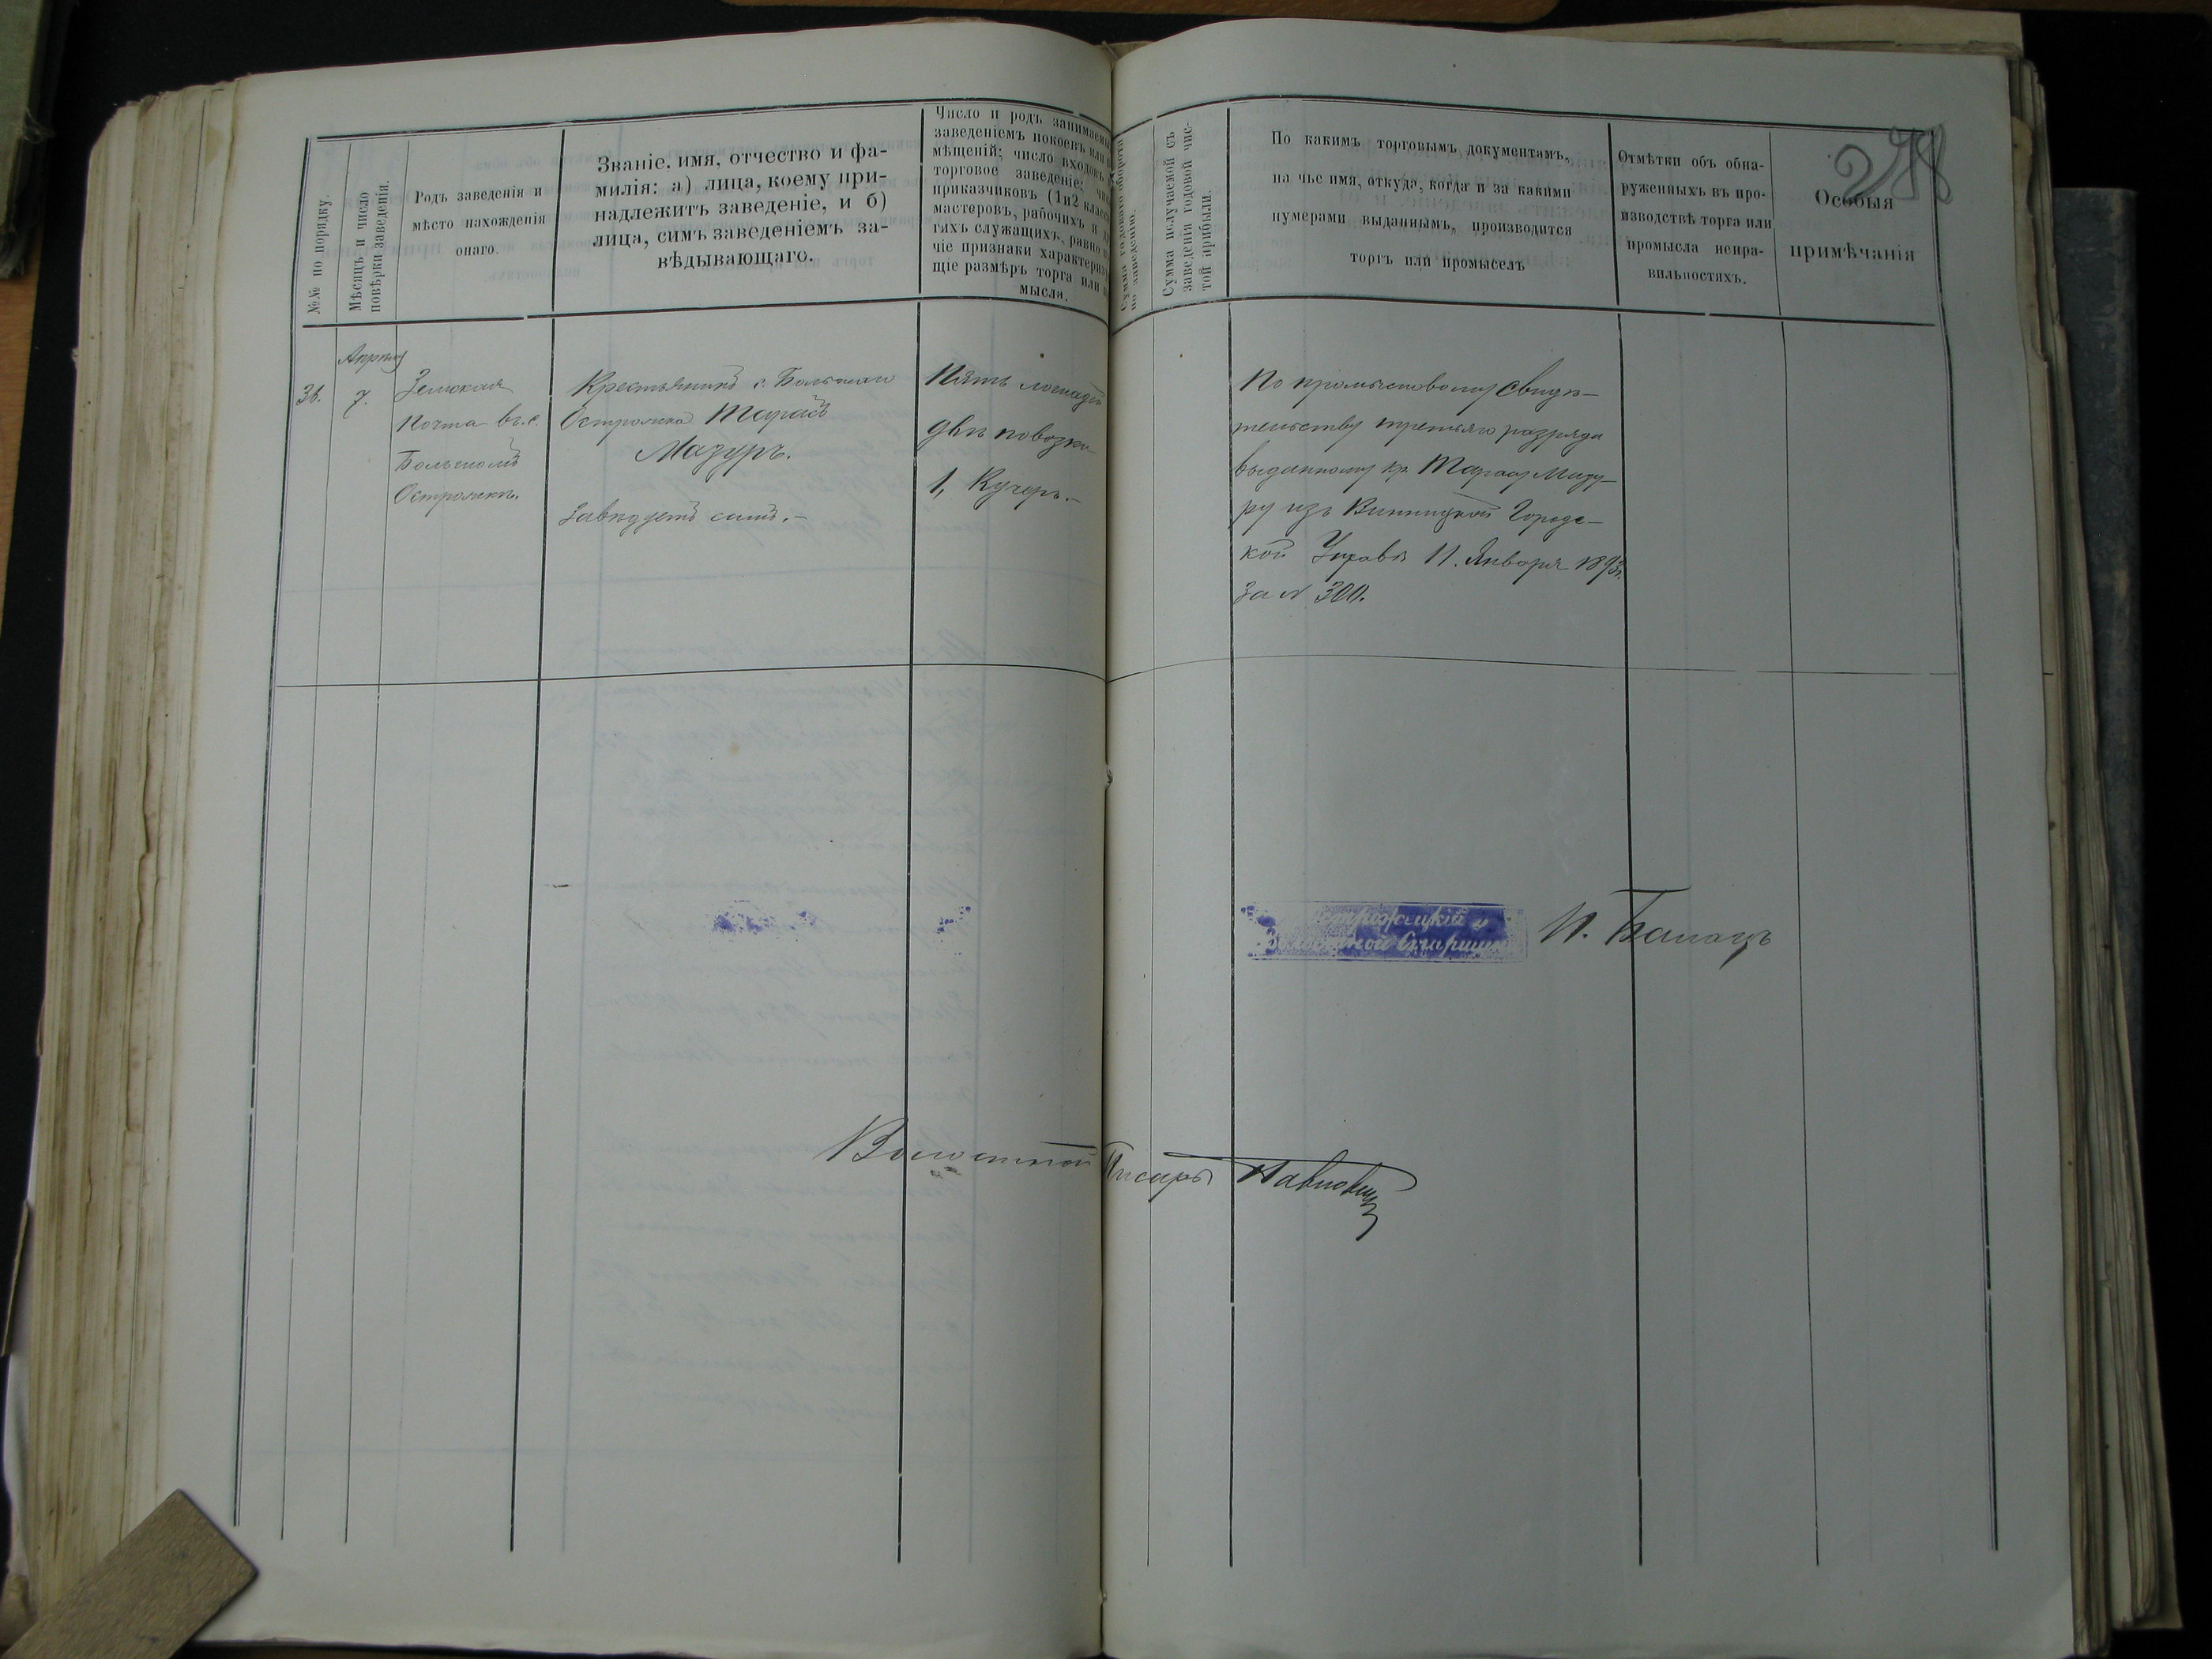 №№ по порядку.
Мѣсяцъ и число
повѣрки заведенія.
Родъ заведенія и
мѣсто нахожденія
онаго.
Званіе, имя, отчество и фа-
милія: а) лица, коему при-
надлежитъ заведеніе, и б)
лица, симъ заведеніемъ за-
вѣдывающаго.
Число и родъ занимаемы
заведеніемъ покоевъ или п
мѣщеній; число входовъ
торговое заведеніе; чи
приказчиковъ (1и2 класс
мастеровъ, рабочихъ и д
гихъ служащихъ, равно п
чіе признаки характериз
щіе размѣръ торга или п
мысла.
Сумма годоваго оборота
по заведенію.
Сумма получаемой съ
заведенія годовой чис-
той прибыли.
По какимъ торговымъ документамъ,
на чье имя, откуда, когда и за какими
нумерами выданнымъ, производится
торгъ или промыселъ
Отмѣтки объ обна-
руженныхъ въ про-
изводствѣ торга или
промысла непра-
вильностяхъ.
Особыя
примѣчанія
36.
Апрѣля
7.
Земская
Почта въ с.
Большомъ
Острожкѣ.
Крестьянинъ с. Большаго
Острожка Тарасъ
Мазуръ.
Завѣдуетъ самъ.—
Пять лошадей
двѣ повозки
1, Кучеръ.—
По промысловому свидѣ—
тельству третьяго разряда
выданному кр. Тарасу Мазу—
ру изъ Винницкой Городс—
кой Управы 11. Января 1893г.
за № 300.
Волостной Старшина
Волостной Писарь Павловичъ